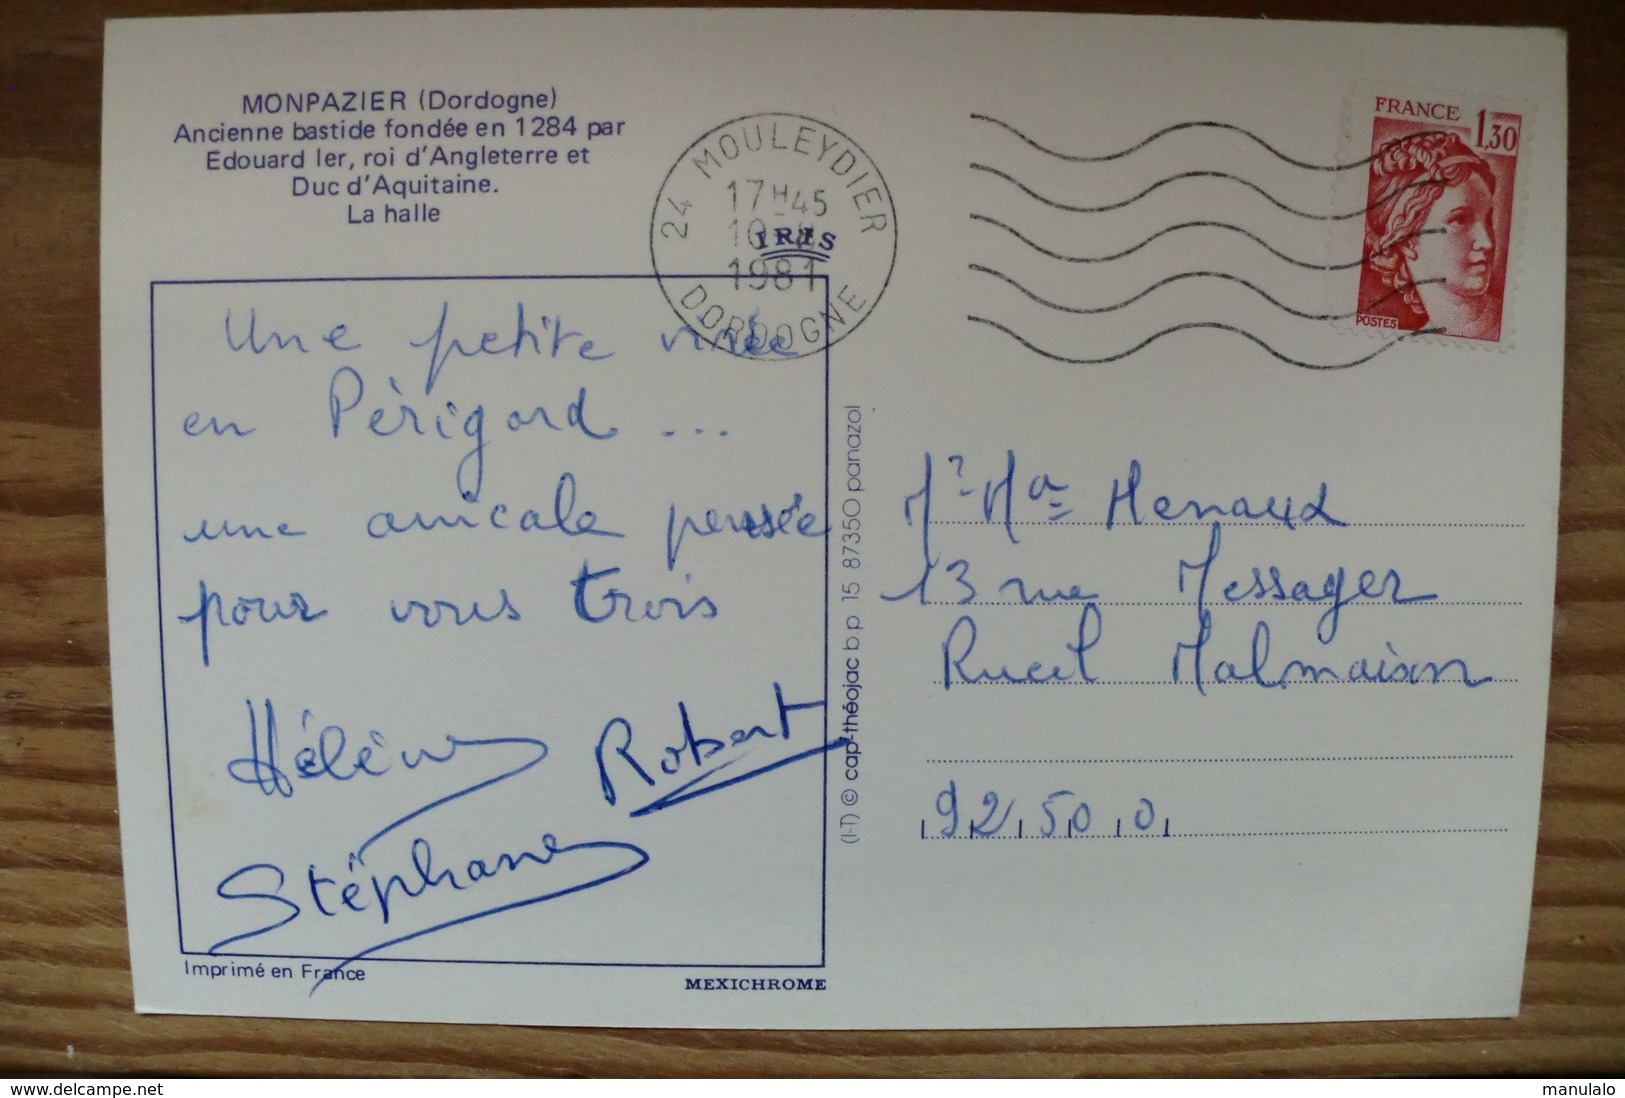 MONPAZIER (Dordogne)
Ancienne bastide fondée en 1284 par
Edouard Ier, roi d'Angleterre et
Duc d'Aquitaine.
La halle
24 MOULEYDIER
17H45
1981
DORDOGNE
IRIS
FRANCE 1,30
POSTES
Une petite virée
en Périgord ...
une amicale pensée
pour vous trois
Hélène
Robert
Stéphane
Imprimé en France
MEXICHROME
(I-T) © cap-théojac b.p. 15 87350 panazol
13 rue Messager
Rueil Malmaison
92500
www.delcampe.net
manulalo